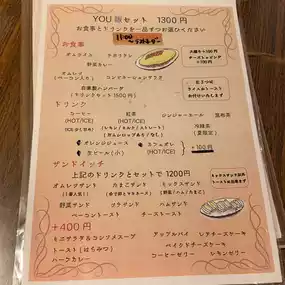 YOU 飯セット 1300円
お食事とドリンクを一品ずつお選びください
11:00
お食事
オムライス ナポリタン
野菜カレー
大盛り+100円
オムレツ
(ベーコン入り) コンビネーションサラダ
自家製ハンバーグ
(ドリンクセット1500円)
ライスorトースト
お付けいたします
ドリンク
コーヒー 紅茶 ジンジャーエール 昆布茶
(HOT/ICE) (HOT/ICE)
(レモン/ミルク/ストレート)
冷緑茶
[夏限定]
オレンジジュース カフェオレ +100円
生ビール(小) (HOT/ICE)
サンドイッチ
上記のドリンクとセットで 1200円
オムレツサンド たまごサンド ミックスサンド
野菜サンド ツナサンド ハムサンド
ベーコントースト チーズトースト
+400円
ミニサラダ&コンソメスープ アップルパイ レアチーズケーキ
トースト(はちみつ) ベイクドチーズケーキ
ハーフカレー コーヒーゼリー レモンゼリー